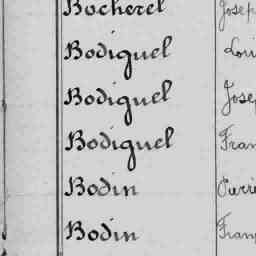 Bocherel Josep
Bodiguel Loui
Bodiguel Jose
Bodiguel Fran
Bodin Pierre
Bodin Franç